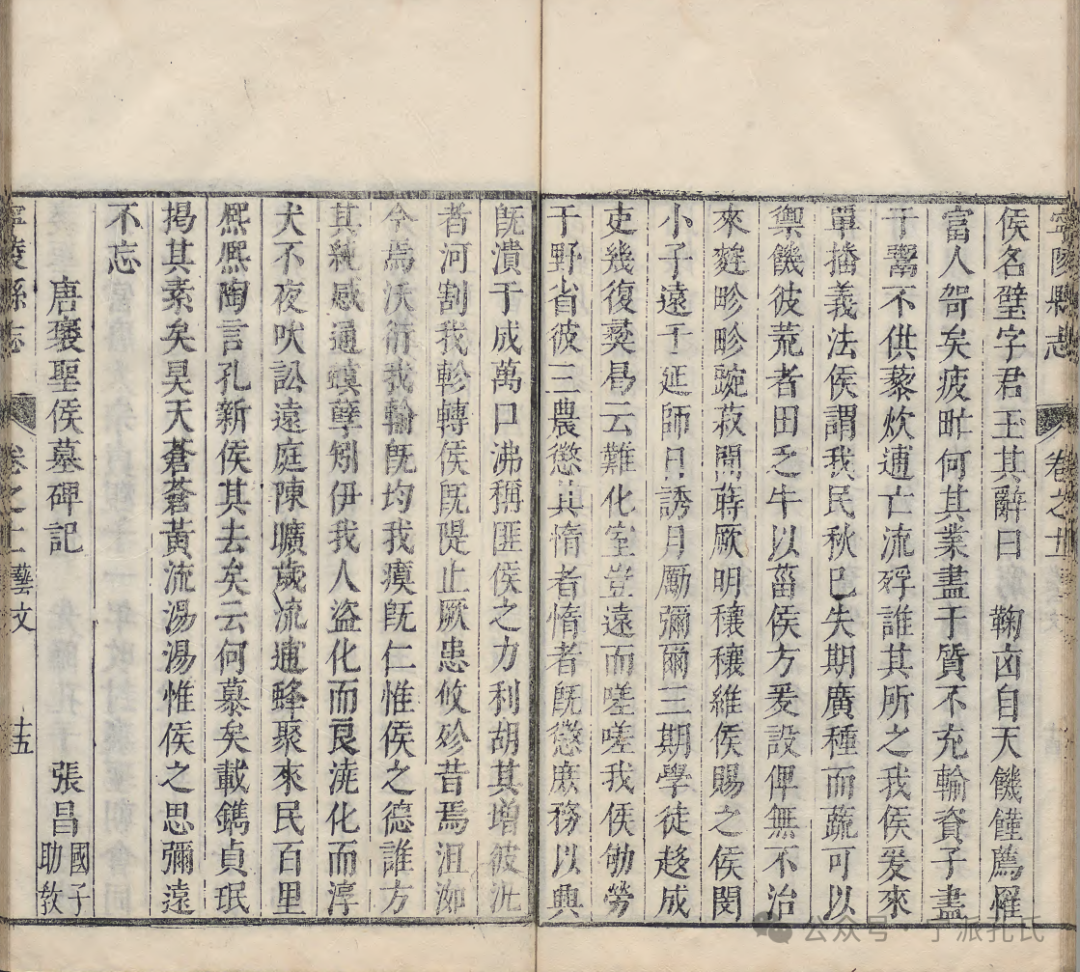 寧陵縣志 卷之十一 藝文
侯名璧字君玉其辭曰 鞠凶自天饑饉薦罹
富人哿矣疲甿何其業盡于質不充輸資子盡
于鬻不供藜炊逋亡流殍誰其所之我侯爰來
單播義法侯謂我民秋巳失期廣種而蔬可以
禦饑彼荒者田乏牛以菑侯方爰設俾無不治
來麰畛畛豌菽閒蒔厥明穰穰維侯賜之侯閔
小子遠于延師日誘月勵彌爾三期學徒趍成
吏幾復蒸昜云難化室豈遠而嗟嗟我侯劬勞
于野省彼三農懲其惰者惰者旣懲庶務以興
旣潰于成萬口沸稱匪侯之力利胡其增彼沇
者河割我軫轉侯旣隄止厥患攸殄昔焉沮洳
今焉沃衍我輸旣均我瘼旣仁惟侯之德誰方
其純感通蝗孽矧伊我人盜化而良澆化而淳
犬不夜吠訟遠庭陳曠歲流逋蜂聚來民百里
熈熈陶言孔新侯其去矣云何慕矣載鐫貞珉
揭其素矣昊天蒼蒼黃流湯湯惟侯之思彌遠
不忘
唐襃聖侯墓碑記 張昌 國子助敎
寧陵縣志 卷之十一 藝文 十五
公众号 · 宁派孔氏